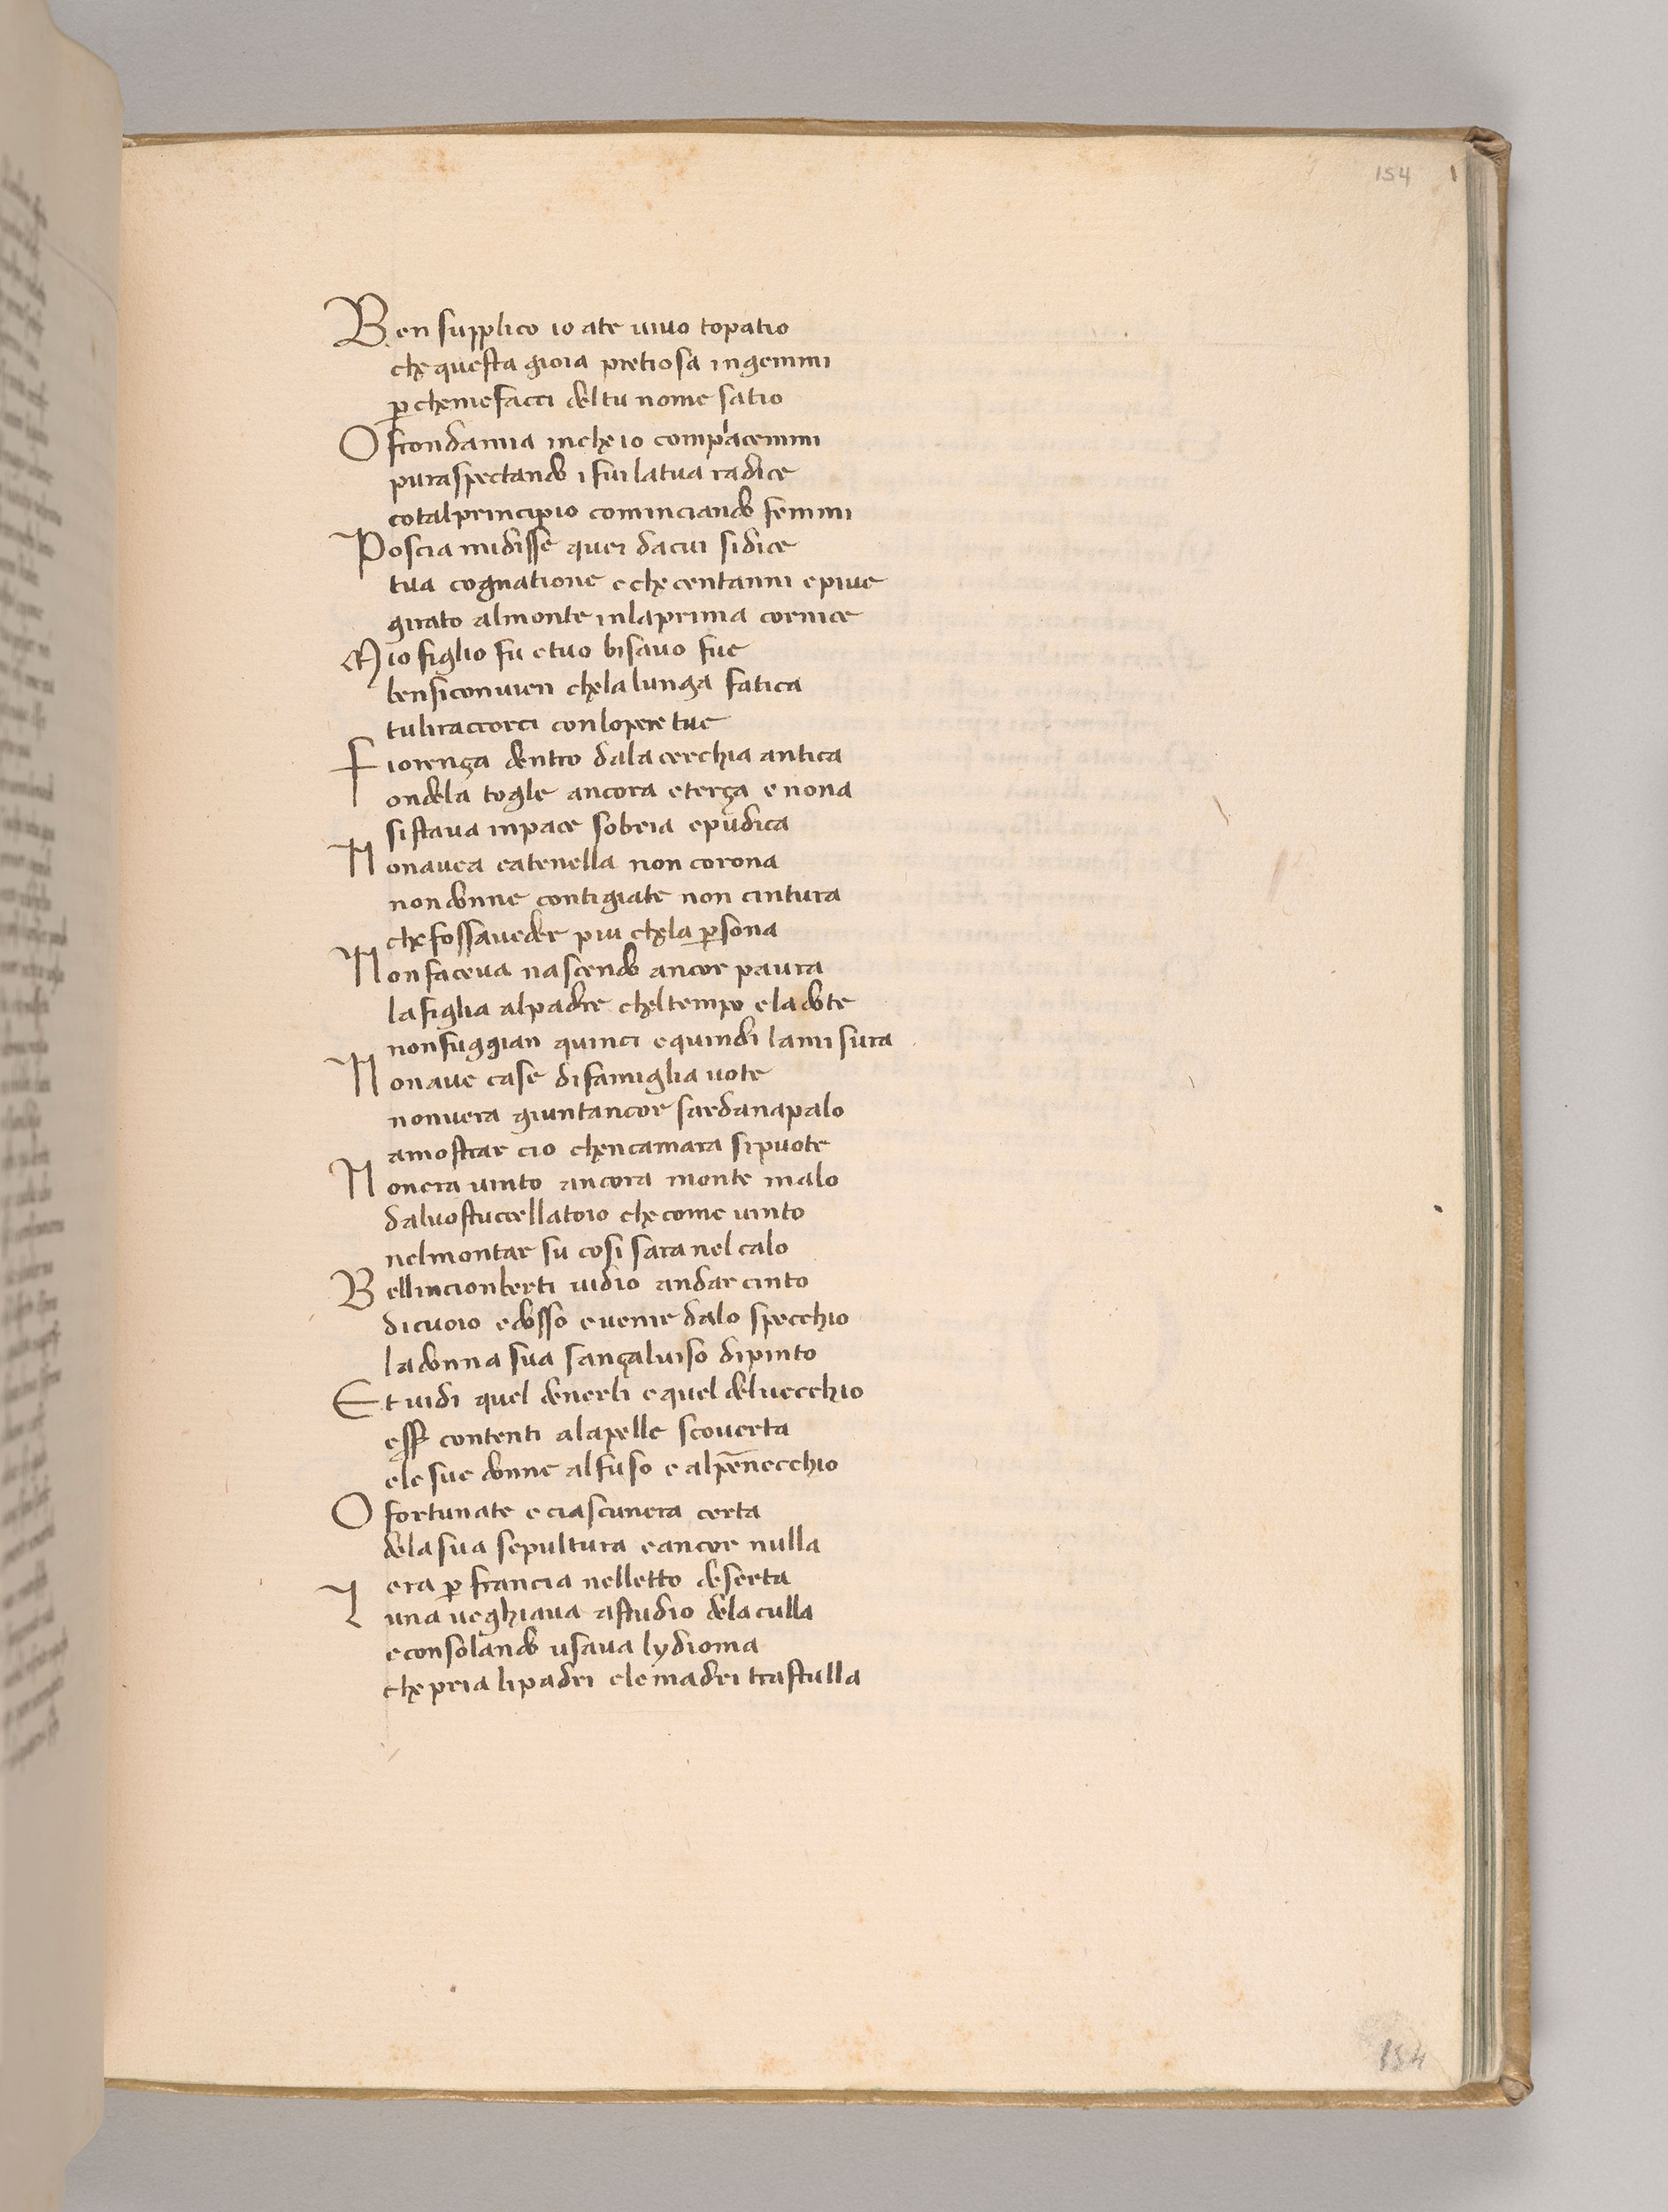 154
Ben supplico io ate uiuo topatio
che questa gioia pretiosa ingemmi
p chemefacci deltu nome satio
O frondamia inche io compiacemmi
puraspectando i fui latua radice
cotalprincipio cominciando femmi
Poscia midisse quei dacui sidice
tua cognatione eche centanni epiue
girato almonte inlaprima cornice
Mio figlio fu etuo bisauo fue
bensiconuien chelalunga fatica
tuliraccorci conlopere tue
Fiorença dentro dala cerchia antica
ondela togle ancora eterça e nona
sistaua inpace sobria epudica
Nonauea catenella non corona
nondonne contigiate non cintura
chefossaueder piu chela psona
Nonfaceua nascendo ancor paura
lafiglia alpadre cheltempo eladote
nonfuggian quinci equindi lamisura
Nonaue case difamiglia uote
nonuera giuntancor sardanapalo
amostrar cio chencamara sipuote
Nonera uinto ancora monte malo
daluostuccellatoio che come uinto
nelmontar su cosi sara nel calo
Bellincionberti uidio andar cinto
dicuoio edosso euenir dalo specchio
ladonna sua sançaluiso dipinto
Et uidi quel denerli equel deluecchio
esser contenti alapelle scouerta
ele sue donne alfuso e alpēnecchio
O fortunate e ciascunera certa
delasua sepultura eancor nulla
era p francia nelletto deserta
L una ueghiaua astudio dela culla
econsolando usaua lydioma
che pria lipadri elemadri trastulla
154